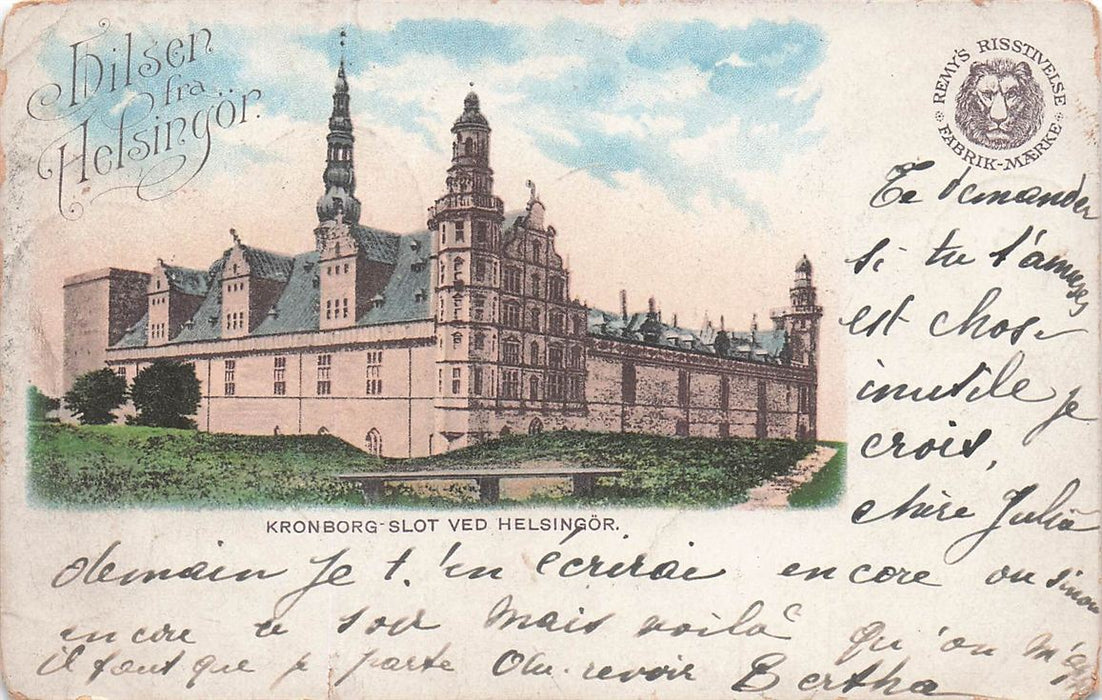 Hilsen
fra
Helsingör.
REMY'S RISSTIVELSE
FABRIK-MÆRKE
KRONBORG-SLOT VED HELSINGÖR.
Te demander
si tu t'amuses
est chose
inutile je
crois,
chère Julia
demain je t'en écrirai encore ou sinon
encore ce soir mais voilà qu'on
il faut que je parte Au revoir Bertha